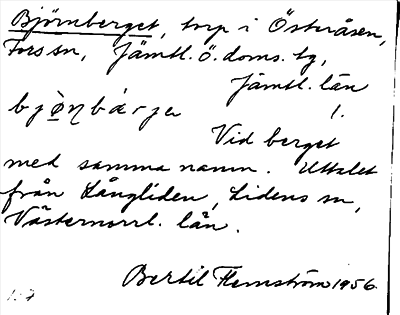 Björnberget, torp i Österåsen,
Fors sn, Jämtl. ö. doms. tg,
Jämtl. län
bjö̀ɳbárje 1.
Vid berget
med samma namn. Uttalet
från Långliden, Lidens sn,
Västernorrl. län.
Bertil Flemström 1956